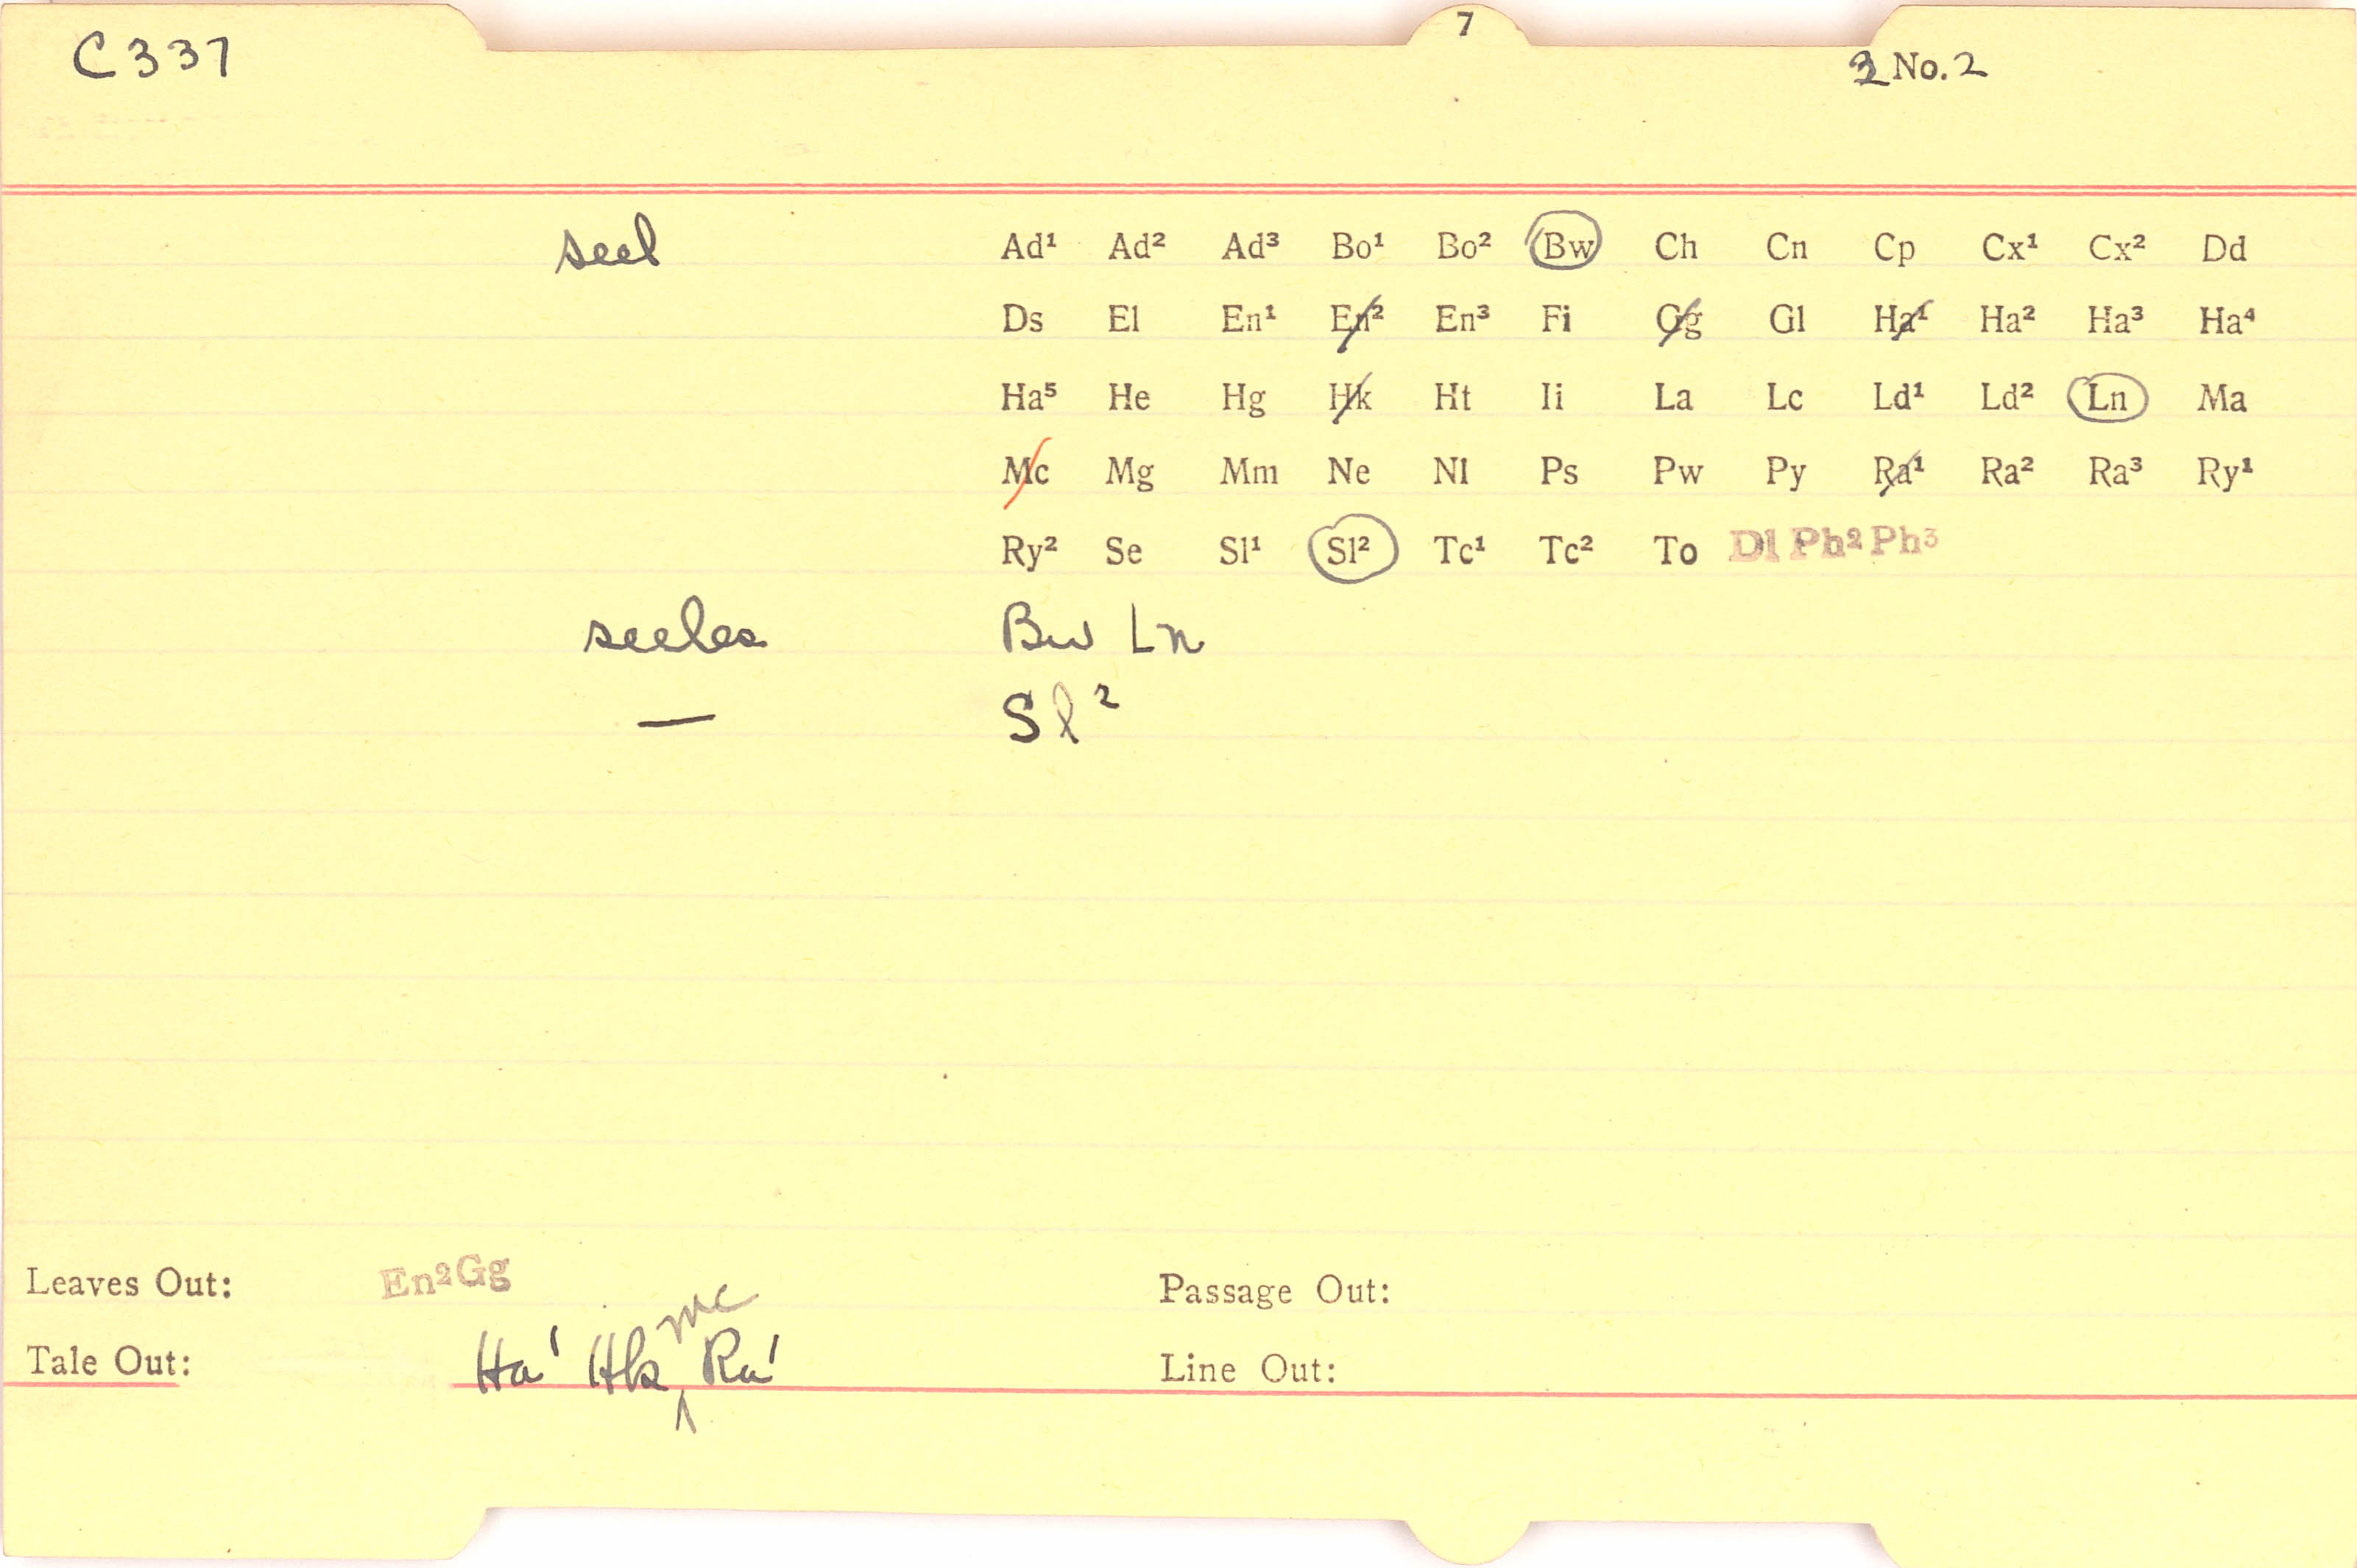 7
C 337
2 No. 2
seel Ad¹ Ad² Ad³ Bo¹ Bo² Bw Ch Cn Cp Cx¹ Cx² Dd
Ds El En¹ En² En³ Fi Gg Gl Ha¹ Ha² Ha³ Ha⁴
Ha⁵ He Hg Hk Ht Ii La Lc Ld¹ Ld² Ln Ma
Mc Mg Mm Ne Nl Ps Pw Py Ra¹ Ra² Ra³ Ry¹
Ry² Se Sl¹ Sl² Tc¹ Tc² To Dl Ph² Ph³
seeles Bw Ln
— Sl²
Leaves Out: En² Gg Passage Out:
Tale Out: Ha¹ Hk Mc Ra¹ Line Out: